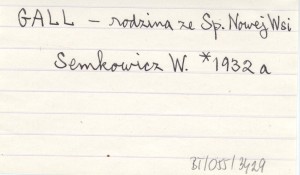 GALL – rodzina ze Sp. Nowej Wsi
Semkowicz W. *1932 a
BJ/055/3429